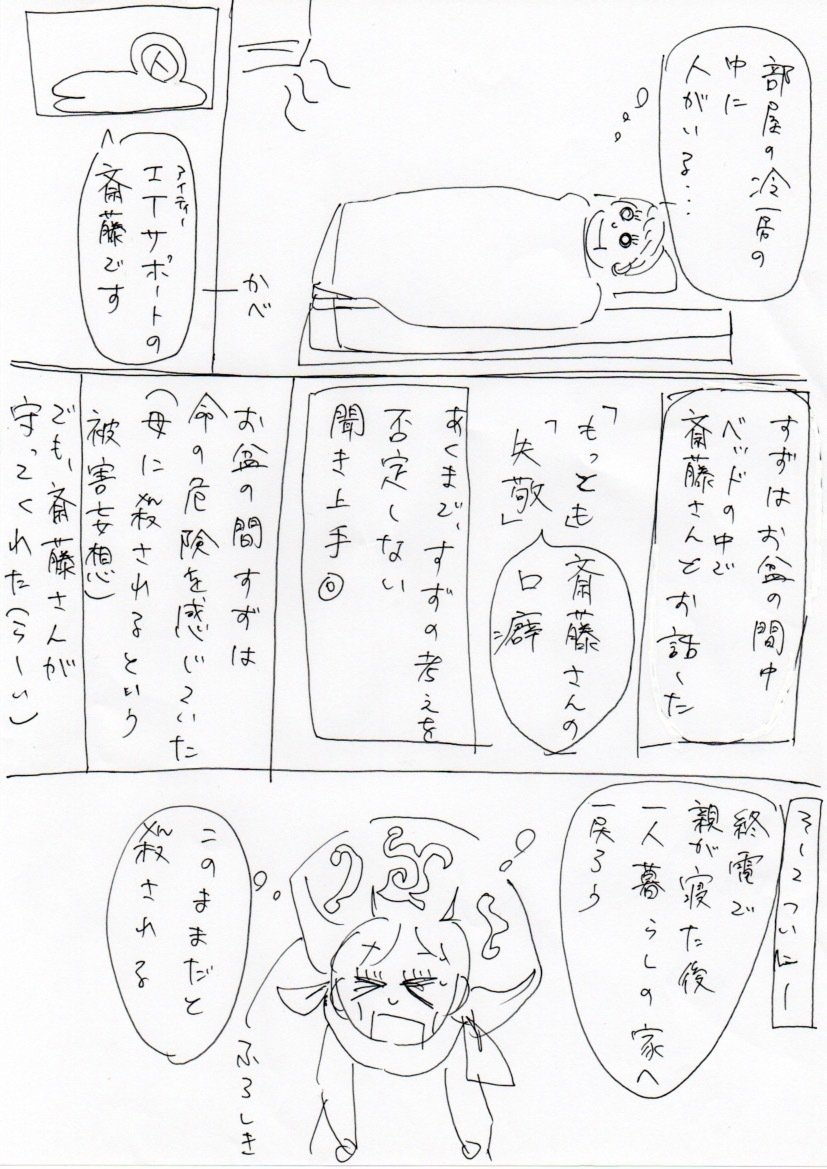 部屋の冷房の
中に
人がいる…
かべ
アイティー
ITサポートの
斎藤です
人
すずはお盆の間中
ベッドの中で
斎藤さんとお話した
「もっとも」
「失敬」
斎藤さんの
口癖
あくまで、すずの考えを
否定しない
聞き上手◎
お盆の間すずは
命の危険を感じていた
(母に殺されるという
被害妄想)
でも、斎藤さんが
守ってくれた(らしい)
そしてついにー
終電で
親が寝た後
一人暮らしの家へ
戻ろう
このままだと
殺される
ふろしき